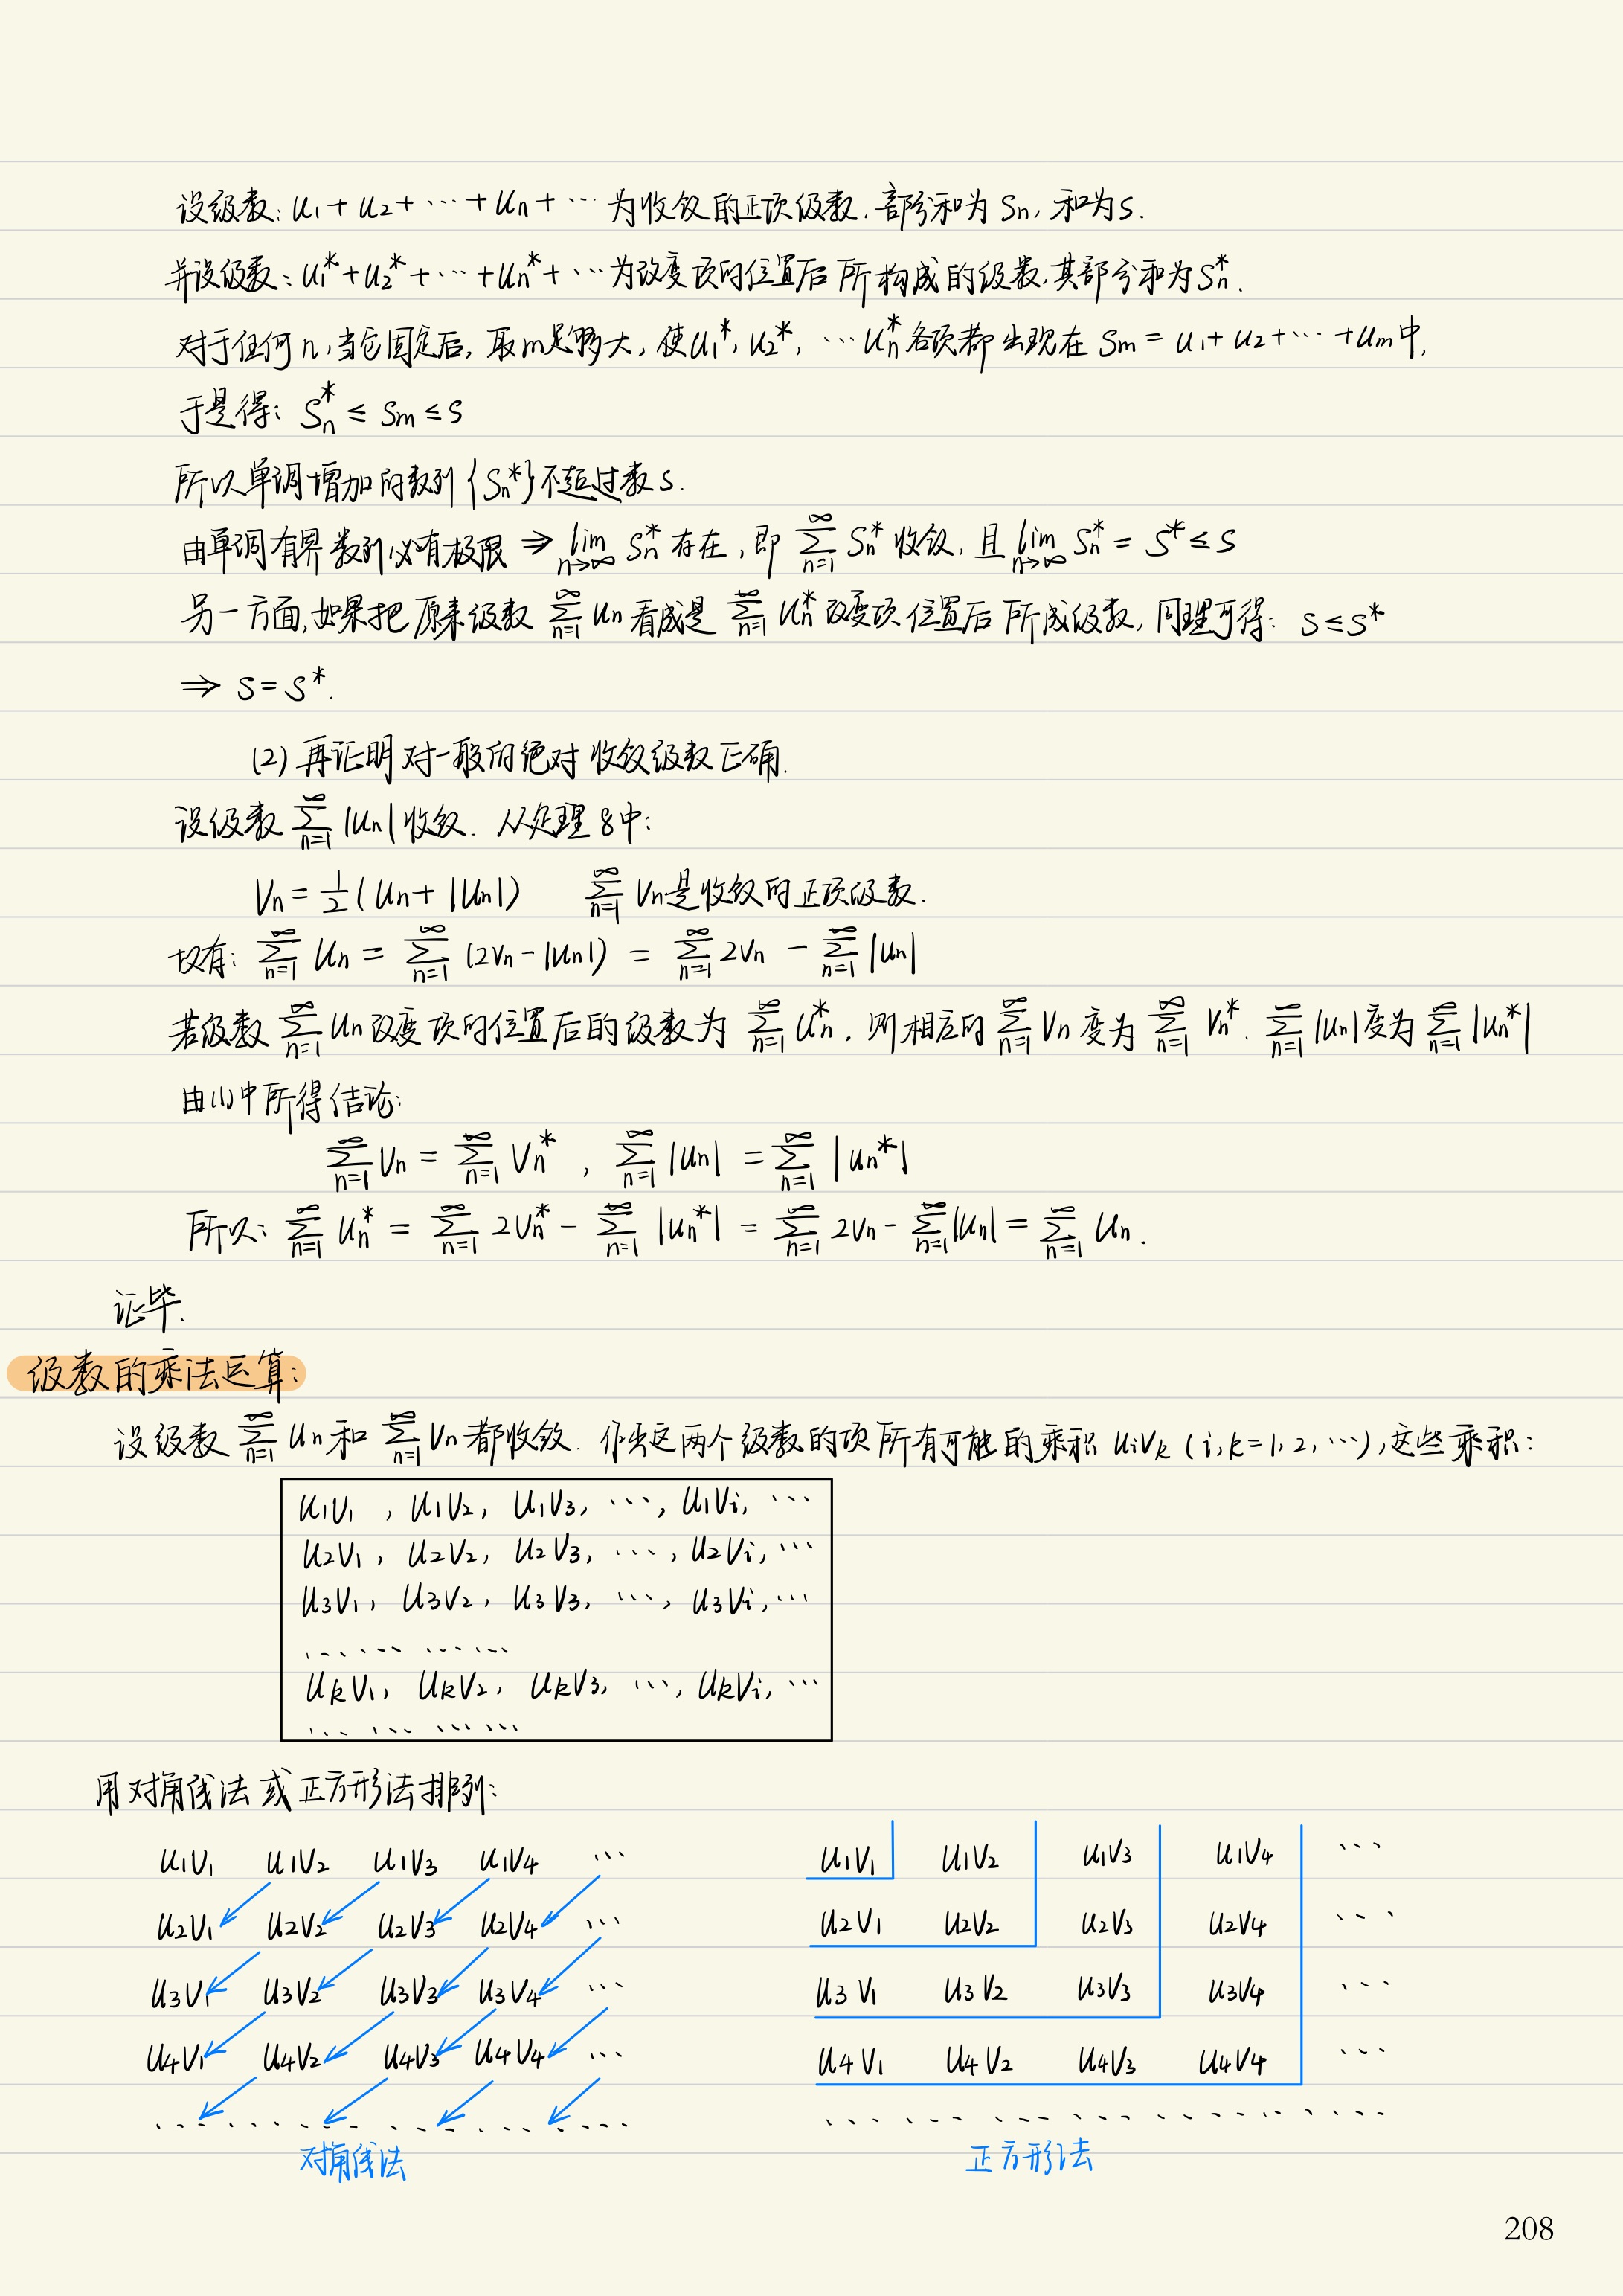 设级数: u₁+u₂+⋯+uₙ+⋯ 为收敛的正项级数. 部分和为 Sₙ, 和为s.
并设级数: u₁*+u₂*+⋯+uₙ*+⋯为改变项的位置后所构成的级数,其部分和为Sₙ*.
对于任何n,当它固定后, 取m足够大, 使u₁*, u₂*, ⋯uₙ*各项都出现在 Sₘ = u₁+u₂+⋯+uₘ中,
于是得: Sₙ* ≤ Sₘ ≤ S
所以单调增加的数列{Sₙ*}不超过数s.
由单调有界数列必有极限 ⇒ lim_{n→∞} Sₙ* 存在, 即 ∑_{n=1}^∞ Sₙ* 收敛, 且 lim_{n→∞} Sₙ* = S* ≤ S
另一方面,如果把原来级数 ∑_{n=1}^∞ uₙ 看成是 ∑_{n=1}^∞ uₙ* 改变项位置后所成级数, 同理可得: S ≤ S*
⇒ S = S*.
(2) 再证明对一般的绝对收敛级数正确.
设级数 ∑_{n=1}^∞ |uₙ| 收敛. 从定理8中:
Vₙ = 1/2 (uₙ + |uₙ|) ∑_{n=1}^∞ Vₙ是收敛的正项级数.
故有: ∑_{n=1}^∞ uₙ = ∑_{n=1}^∞ (2vₙ - |uₙ|) = ∑_{n=1}^∞ 2vₙ - ∑_{n=1}^∞ |uₙ|
若级数 ∑_{n=1}^∞ uₙ 改变项的位置后的级数为 ∑_{n=1}^∞ uₙ*, 则相应的 ∑_{n=1}^∞ Vₙ 变为 ∑_{n=1}^∞ Vₙ*. ∑_{n=1}^∞ |uₙ| 变为 ∑_{n=1}^∞ |uₙ*|
由(1)中所得结论:
∑_{n=1}^∞ Vₙ = ∑_{n=1}^∞ Vₙ* , ∑_{n=1}^∞ |uₙ| = ∑_{n=1}^∞ |uₙ*|
所以: ∑_{n=1}^∞ uₙ* = ∑_{n=1}^∞ 2Vₙ* - ∑_{n=1}^∞ |uₙ*| = ∑_{n=1}^∞ 2vₙ - ∑_{n=1}^∞ |uₙ| = ∑_{n=1}^∞ uₙ.
证毕.
级数的乘法运算:
设级数 ∑_{n=1}^∞ uₙ 和 ∑_{n=1}^∞ vₙ 都收敛. 作出这两个级数的项所有可能的乘积 uᵢvₖ (i,k=1,2,⋯),这些乘积:
u₁v₁ , u₁v₂, u₁v₃, ⋯, u₁vᵢ, ⋯
u₂v₁, u₂v₂, u₂v₃, ⋯, u₂vᵢ, ⋯
u₃v₁, u₃v₂, u₃v₃, ⋯, u₃vᵢ, ⋯
⋯⋯ ⋯⋯
uₖv₁, uₖv₂, uₖv₃, ⋯, uₖvᵢ, ⋯
⋯ ⋯ ⋯⋯
用对角线法或正方形法排列:
u₁v₁ u₁v₂ u₁v₃ u₁v₄ ⋯ u₁v₁ u₁v₂ u₁v₃ u₁v₄ ⋯
u₂v₁ u₂v₂ u₂v₃ u₂v₄ ⋯ u₂v₁ u₂v₂ u₂v₃ u₂v₄ ⋯
u₃v₁ u₃v₂ u₃v₃ u₃v₄ ⋯ u₃v₁ u₃v₂ u₃v₃ u₃v₄ ⋯
u₄v₁ u₄v₂ u₄v₃ u₄v₄ ⋯ u₄v₁ u₄v₂ u₄v₃ u₄v₄ ⋯
⋯⋯⋯⋯⋯ ⋯⋯⋯⋯⋯⋯
对角线法 正方形法
208